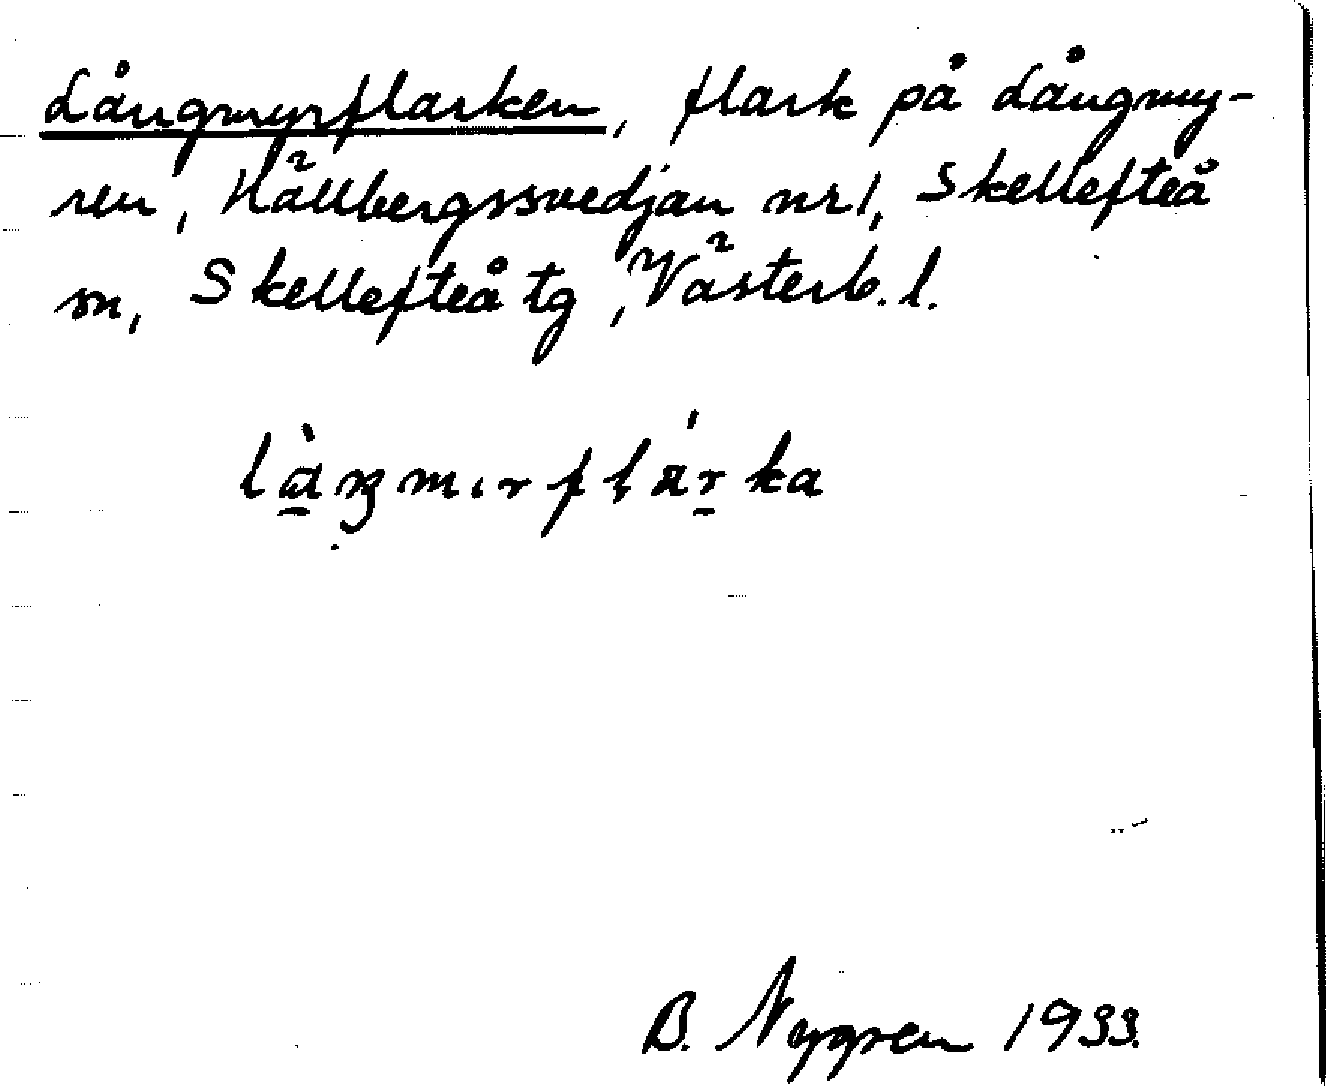 Långmyrflarken, flark på Långmy-
ren, Hällbergssvedjan nr 1, Skellefteå
sn, Skellefteå tg, Västerb. l.
B. Nygren 1933.